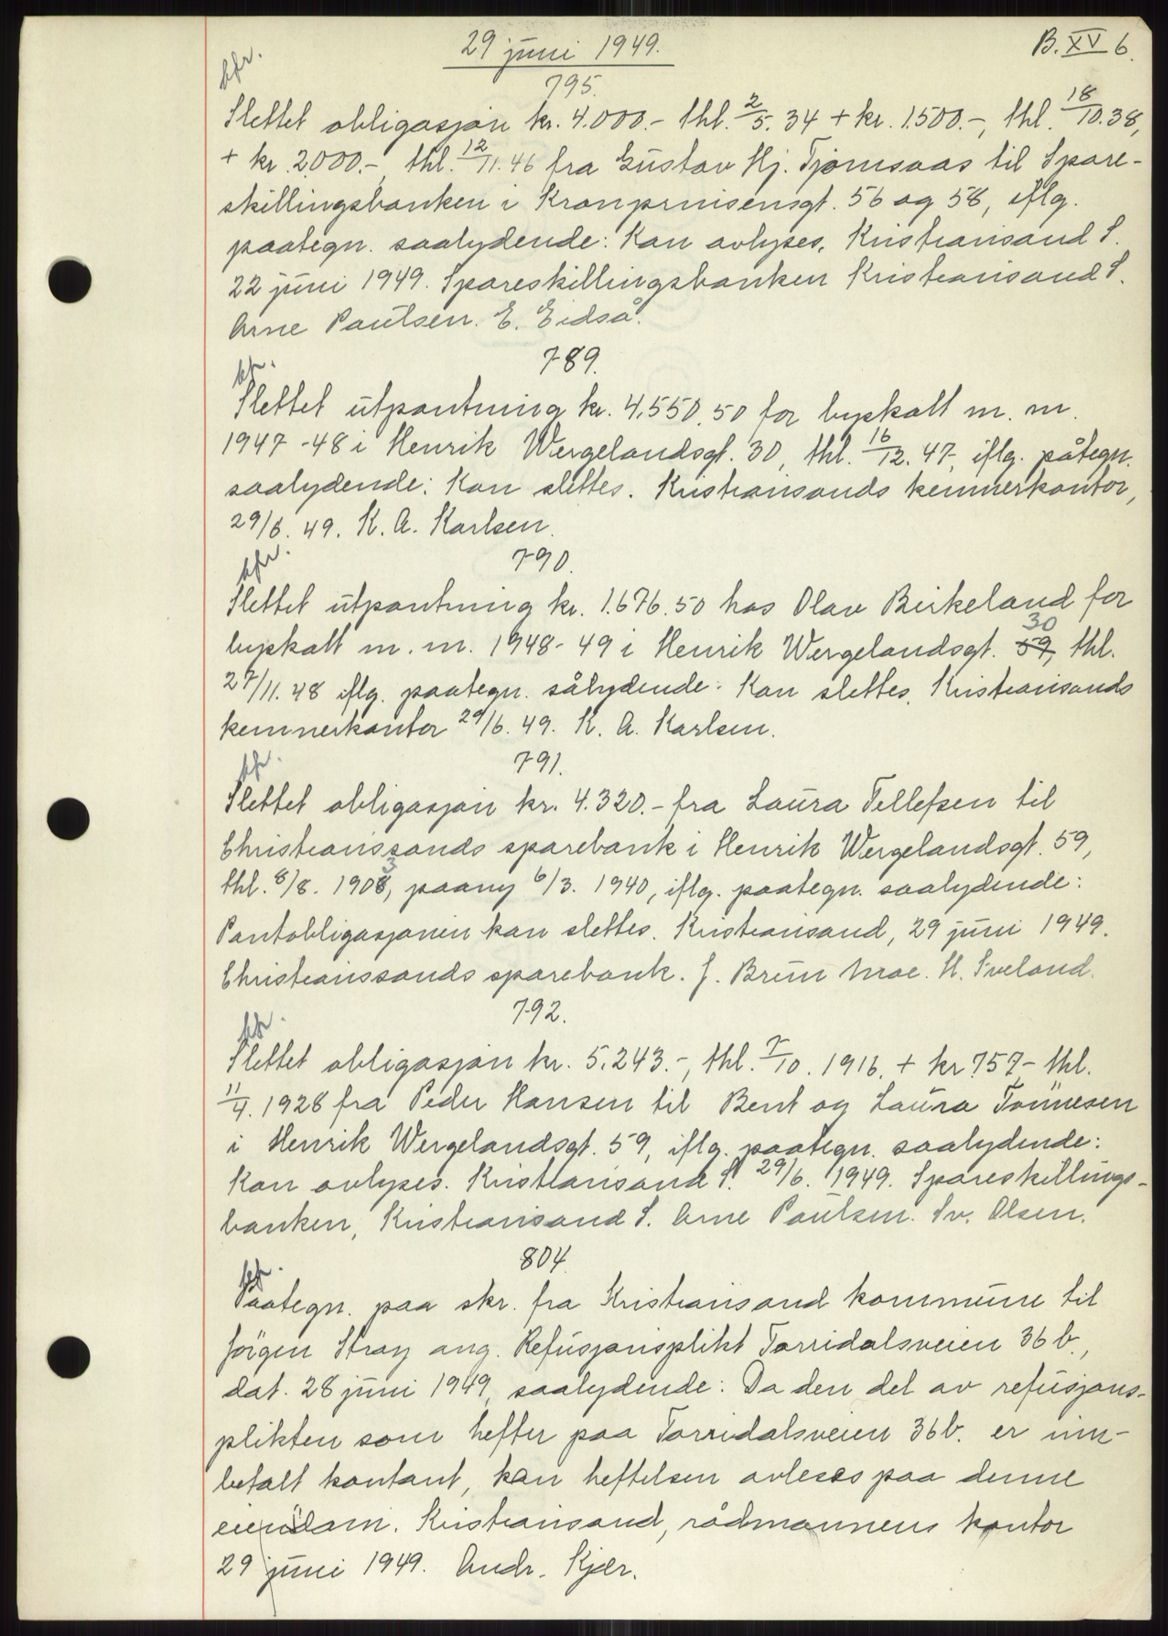 29 juni 1949.
B. XV 6.
kfr.
795.
Slettet obligasjon kr. 4.000.- thl. 2/5. 34 + kr. 1.500.-, thl. 18/10.38,
+ kr. 2.000.-, thl. 12/11.46 fra Gustav Hj. Tjomsaas til Spare-
skillingsbanken i Kronprinsensgt. 56 og 58, iflg.
paategn. saalydende: Kan avlyses, Kristiansand S.
22 juni 1949. Spareskillingsbanken Kristiansand S.
Arne Paulsen. E. Eidså.
kfr.
789.
Slettet utpantning kr. 4.550.50 for byskatt m. m.
1947-48 i Henrik Wergelandsgt. 30, thl. 16/12. 47, iflg. påtegn.
saalydende: Kan slettes. Kristiansands kemnerkontor,
29/6. 49. K. A. Karlsen.
kfr.
790.
Slettet utpantning kr. 1.676.50 hos Olav Birkeland for
30
byskatt m. m. 1948-49 i Henrik Wergelandsgt. 59, thl.
27/11.48 iflg. paategn. sålydende: Kan slettes. Kristiansands
kemnerkontor 29/6. 49. K. A. Karlsen.
kfr.
791.
Slettet obligasjon kr. 4.320.- fra Laura Tellefsen til
Christianssands sparebank i Henrik Wergelandsgt. 59,
thl. 8/8. 1908, paany 6/3. 1940, iflg. paategn. saalydende:
Pantobligasjonen kan slettes. Kristiansand, 29 juni 1949.
Christianssands sparebank. J. Brun Moe. H. Sveland.
kfr.
792.
Slettet obligasjon kr. 5.243.-, thl. 7/10. 1916. + kr 757- thl.
11/4. 1928 fra Peder Hansen til Bent og Laura Tönnesen
i Henrik Wergelandsgt. 59, iflg. paategn. saalydende:
Kan avlyses. Kristiansand S. 29/6. 1949. Spareskillings-
banken, Kristiansand S. Arne Paulsen. Sv. Olsen.
kfr.
804
Paategn. paa skr. fra Kristiansand kommune til
Jörgen Stray ang. Refusjonsplikt Torridalsveien 36 b.,
dat. 28 juni 1949, saalydende: Da den del av refusjons-
plikten som hefter paa Torridalsveien 36b. er inn-
betalt kontant, kan heftelsen avleses paa denne
eiendom. Kristiansand, rådmannens kontor
29 juni 1949. Andr. Kjær.